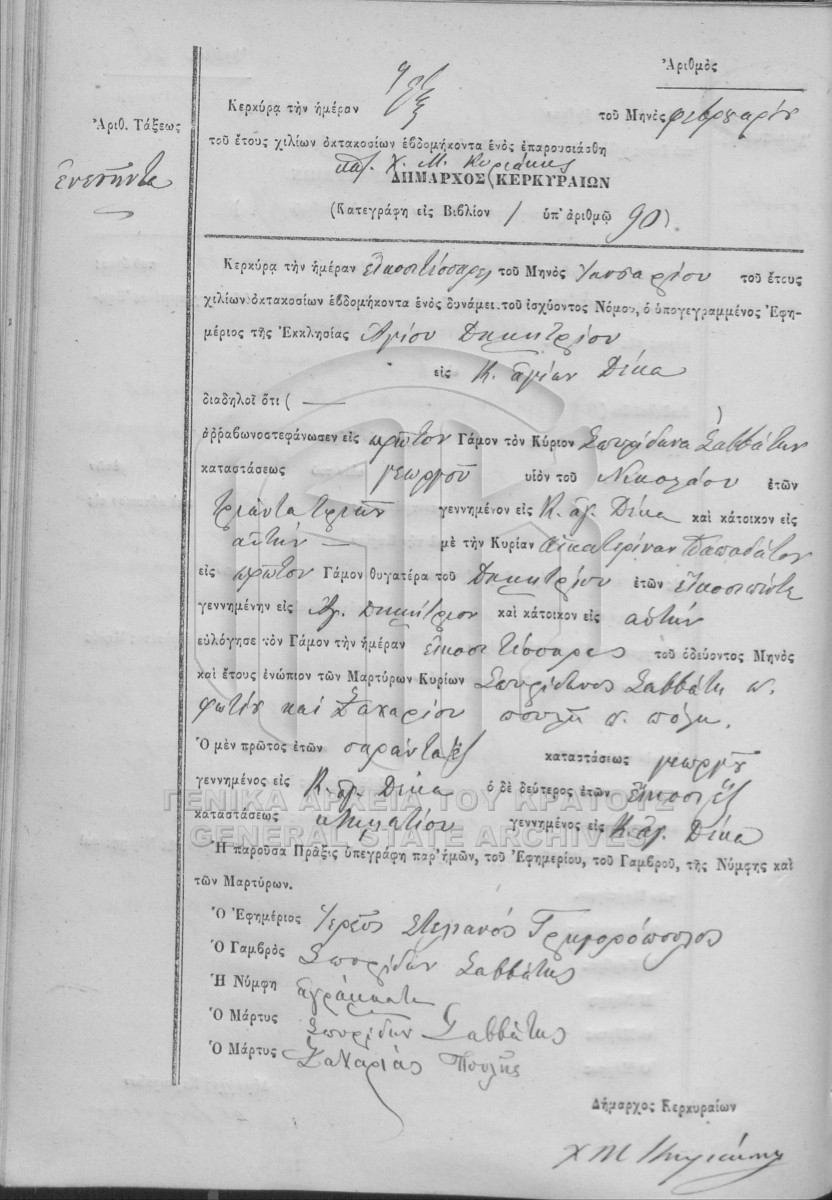 Ἀριθμὸς
Κερκύρᾳ τὴν ἡμέραν τοῦ Μηνὸς φεβρουαρίου
Ἀριθ. Τάξεως
τοῦ ἔτους χιλίων ὀκτακοσίων ἑβδομήκοντα ἑνὸς ἐπαρουσιάσθη
ἐνενῆντα
Χ. Μ. Κυριάκης
ΔΗΜΑΡΧΟΣ ΚΕΡΚΥΡΑΙΩΝ
(Κατεγράφη εἰς Βιβλίον 1 ὑπ' ἀριθμῷ 90)
Κερκύρᾳ τὴν ἡμέραν εἰκοσιτέσσαρες τοῦ Μηνὸς Ἰανουαρίου τοῦ ἔτους
χιλίων ὀκτακοσίων ἑβδομήκοντα ἑνὸς δυνάμει τοῦ ἰσχύοντος Νόμου, ὁ ὑπογεγραμμένος Ἐφη-
μέριος τῆς Ἐκκλησίας Ἁγίου Δημητρίου
εἰς Κ. ἁγίων Δέκα
διαδηλοῖ ὅτι ( —
ἀρραβωνοστεφάνωσεν εἰς πρῶτον Γάμον τὸν Κύριον Σπυρίδωνα Σαββάτην
καταστάσεως γεωργοῦ υἱὸν τοῦ Νικολάου ἐτῶν
τριάντα τριῶν γεννημένον εἰς Κ. ἁγ. Δέκα καὶ κάτοικον εἰς
αὐτήν — μὲ τὴν Κυρίαν Αἰκατερίναν Παπαδάτου
εἰς πρῶτον Γάμον θυγατέρα τοῦ Δημητρίου ἐτῶν εἰκοσιπέντε
γεννημένην εἰς Ἁγ. Δημήτριον καὶ κάτοικον εἰς αὐτήν
εὐλόγησε τὸν Γάμον τὴν ἡμέραν εἴκοσι τέσσαρες τοῦ ὁδεύοντος Μηνὸς
καὶ ἔτους ἐνώπιον τῶν Μαρτύρων Κυρίων Σπυρίδωνος Σαββάτη π.
φωτίου καὶ Ζαχαρίου Πουλῆ π.
Ὁ μὲν πρῶτος ἐτῶν σαράντα ἓξ καταστάσεως γεωργοῦ
γεννημένος εἰς Κ. ἁγ. Δέκα ὁ δὲ δεύτερος ἐτῶν εἴκοσι ἓξ
ΓΕΝΙΚΑ ΑΡΧΕΙΑ ΤΟΥ ΚΡΑΤΟΥΣ
καταστάσεως κτηματίου γεννημένος εἰς Κ. ἁγ. Δέκα
GENERAL STATE ARCHIVES
Ἡ παροῦσα Πρᾶξις ὑπεγράφη παρ' ἡμῶν, τοῦ Ἐφημερίου, τοῦ Γαμβροῦ, τῆς Νύμφης καὶ
τῶν Μαρτύρων.
Ὁ Ἐφημέριος Ἱερεὺς Στυλιανός Γρηγορόπουλος
Ὁ Γαμβρὸς Σπυρίδων Σαββάτης
Ἡ Νύμφη ἀγράμματη
Ὁ Μάρτυς Σπυρίδων Σαββάτης
Ὁ Μάρτυς Ζαχαρίας Πουλῆς
Δήμαρχος Κερκυραίων
Χ Μ Κυριάκης